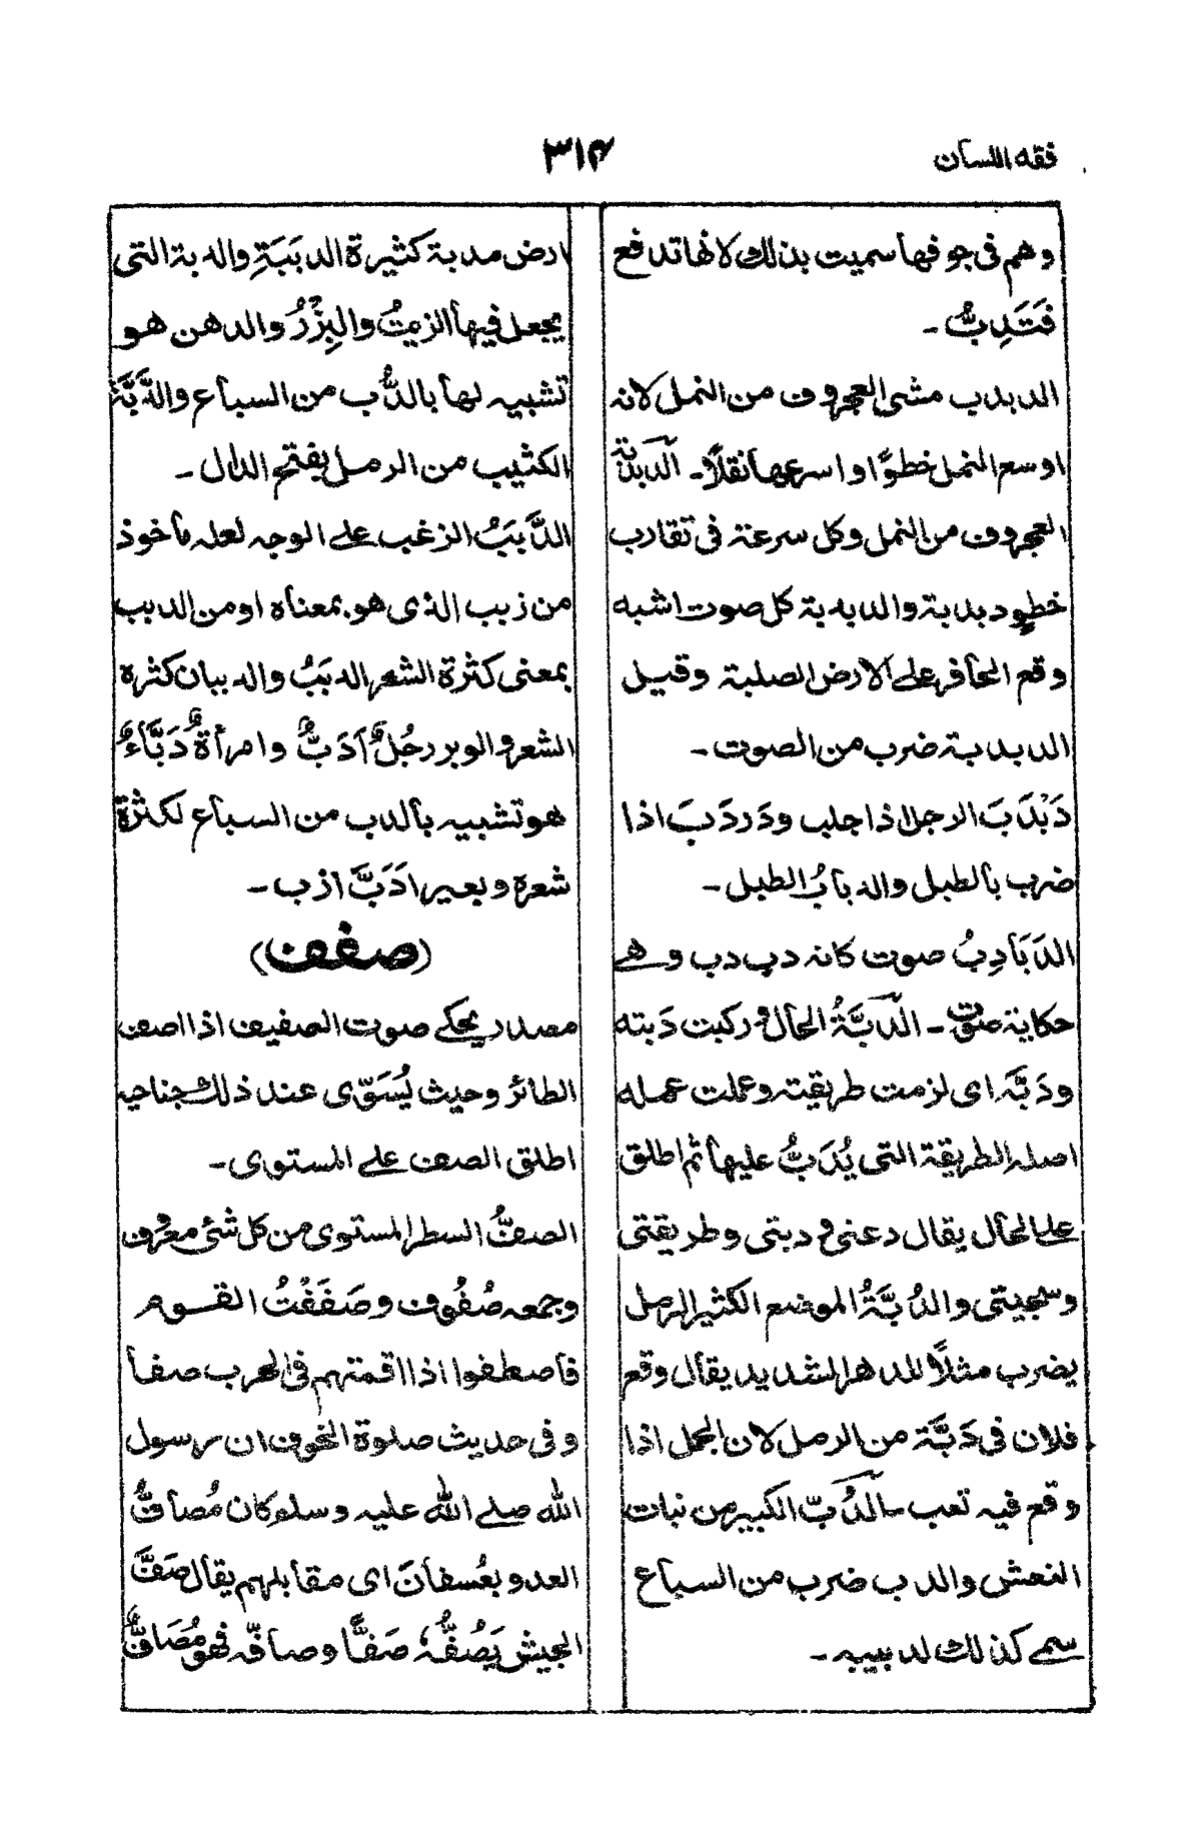 فقه اللسان
٣١٤
وهم فى جوفها سميت بذلك لانها تدفع
فَتَدِبُّ ـ
الدبدب مشى العجروف من النمل لانه
اوسع النمل خطوًا واسرعها نقلًا ـ الدَّبدبة
العجروف من النمل وكل سرعة فى تقارب
خطو دبدبة والدبدبة كل صوت اشبه
وقع الحافر على الارض الصلبة وقيل
الدبدبة ضرب من الصوت ـ
دَبْدَبَ الرجل اذا جلب ودَردَبَ اذا
ضرب بالطبل والدبابُ الطبل ـ
الدَبَادِبُ صوت كانه دب دب وهى
حكاية صوت ـ الدَّبَّةُ الحال و ركبت دَبته
ودَبَّه اى لزمت طريقته وعملت عمله
اصله الطريقة التى يُدَبُّ عليها ثم اطلق
على الحال يقال دعنى و دبتى وطريقتى
وسجيتى والدُبَّةُ الموضع الكثير الرمل
يضرب مثلًا للدهر الشديد يقال وقع
فلان فى دَبَّة من الرمل لان الجمل اذا
وقع فيه تعب ـ الدُّبّ الكبير من نبات
النعش والدب ضرب من السباع
سمى كذلك لدبيبه ـ
ارض مدبة كثيرة الدبَبَةِ والدبة التى
يجعل فيها الزيتُ والبِزْرُ والدهن هو
تشبيه لها بالدُّب من السباع والدَّبَّة
الكثيب من الرمل بفتح الدال ـ
الدَّبَبُ الزغب على الوجه لعله مأخوذ
من زبب الذى هو بمعناه او من الدبب
بمعنى كثرة الشعر الدبَبُ والدببان كثرة
الشعر والوبر رجُلٌ اَدَبٌّ وامرأةٌ دَبَّاءُ
هو تشبيه بالدب من السباع لكثرة
شعره وبعير ادَبَّ ازب ـ
(صفف)
مصدر يحكى صوت الصفيف اذا اصف
الطائر وحيث يُسَوّى عند ذلك جناحيه
اطلق الصف على المستوى ـ
الصفُّ السطر المستوى من كل شئ معروف
وجمعه صُفُوف وصَفَفْتُ القوم
فاصطفوا اذا اقمتهم فى الحرب صفا
وفى حديث صلوة الخوف ان رسول
الله صلى الله عليه وسلم كان مُصافَّ
العدو بعُسفانَ اى مقابلهم يقال صَفَّ
الجيش يَصُفُّهٗ صَفًّا وصافّه فهو مُصَافٌّ